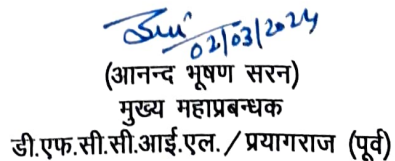 02/03/2024
(आनन्द भूषण सरन)
मुख्य महाप्रबन्धक
डी.एफ.सी.सी.आई.एल./प्रयागराज (पूर्व)